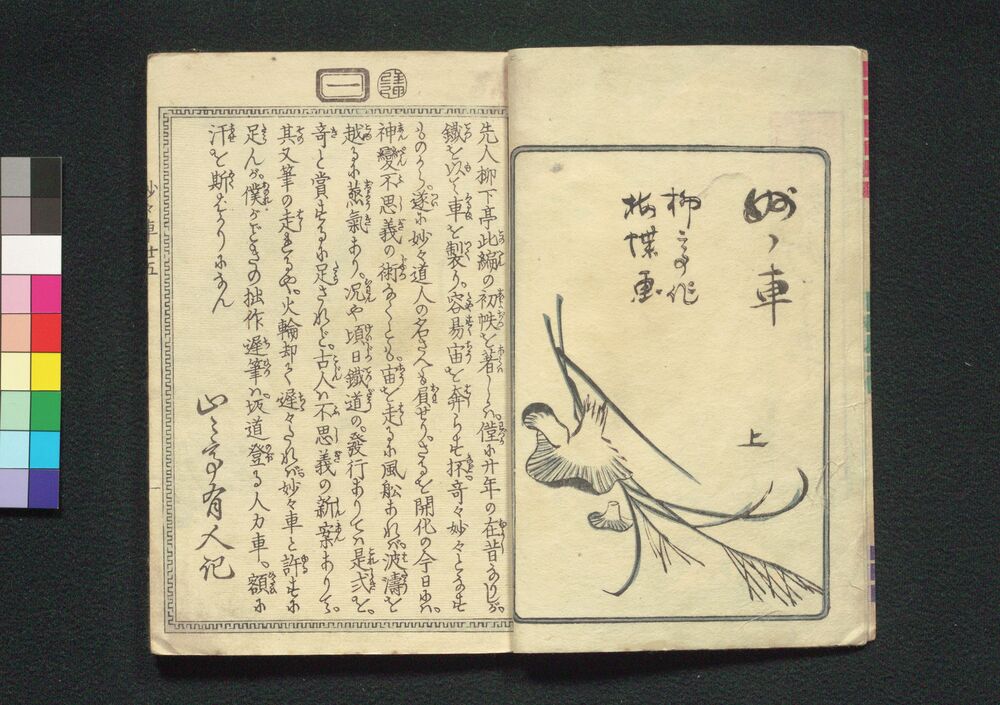 妙々車
柳亭作
梅蝶画
上
先人柳下亭此編の初帙を著しハ僅に廿年の在昔なりしが
鐵を以て車を製り容易宙を奔らせ採奇々妙々となせ
ものから遂に妙々道人の名さへも屓せりさるを開化の今日ゆハ
神變不思義の術なくとも宙を走るに風舩あれバ波濤を
越るに蒸氣あり况や頃日鐵道の發行ありてハ是式を
奇と賞するに足されど古人ハ不思義の新案ありて
其又筆の走れるや火輪却て遅々たれバ妙々車と許すに
足んが僕がごときの拙作遅筆ハ坂道登る人力車額に
汗を斯ばかりになん
山々亭有人記
一
妙々車 廿五
一